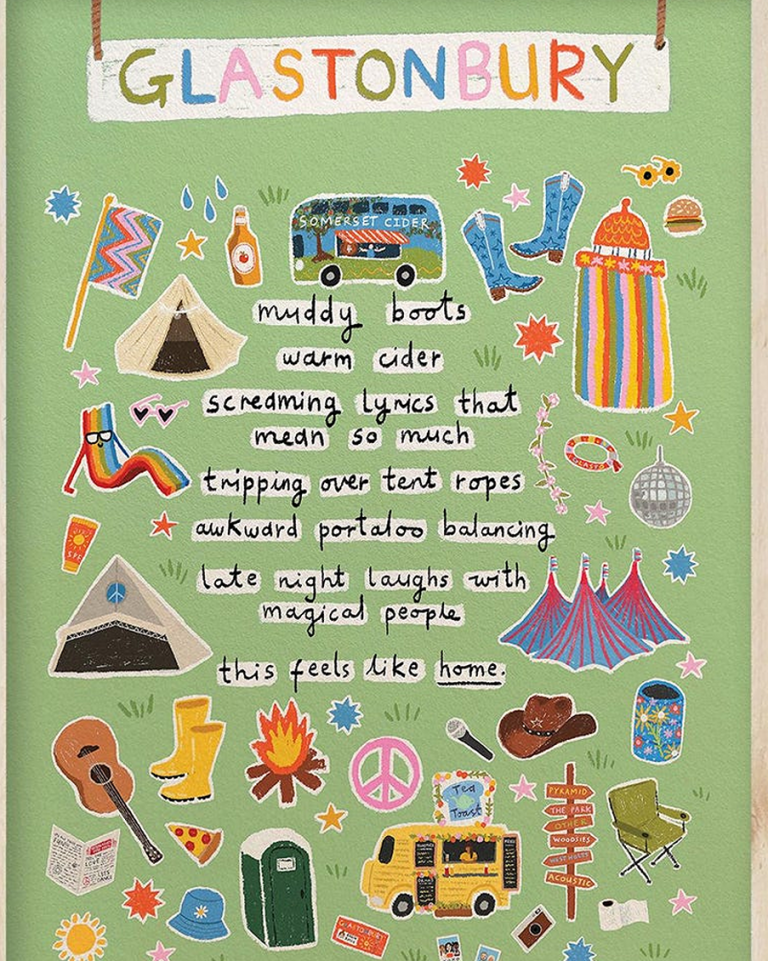 GLASTONBURY
SOMERSET CIDER
muddy boots
warm cider
screaming lyrics that
mean so much
GLASTO
tripping over tent ropes
awkward portaloo balancing
SPF
late night laughs with
magical people
this feels like home.
Tea
Toast
PYRAMID
THE PARK
OTHER
WOODSIES
WEST HOLTS
ACOUSTIC
GLASTONBURY